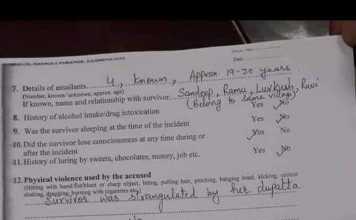 7. Details of assailants 4, Known, Approx. 19-30 years
(Number, known/unknown, approx. age)
If known, name and relationship with survivor. Sandeep, Ramu, Luvkush, Ravi
(Belong to same village)
8. History of alcohol intake/drug intoxication Yes No
9. Was the survivor sleeping at the time of the incident Yes No
10. Did the survivor lose consciousness at any time during or Yes No
after the incident
11. History of luring by sweets, chocolates, money, job etc. Yes No
12. Physical violence used by the accused
(Hitting with hand/fist/blunt or sharp object, biting, pulling hair, pinching, banging head, kicking, violent
shaking, dragging, burning with cigarettes etc.)
Survivor was strangulated by her dupatta